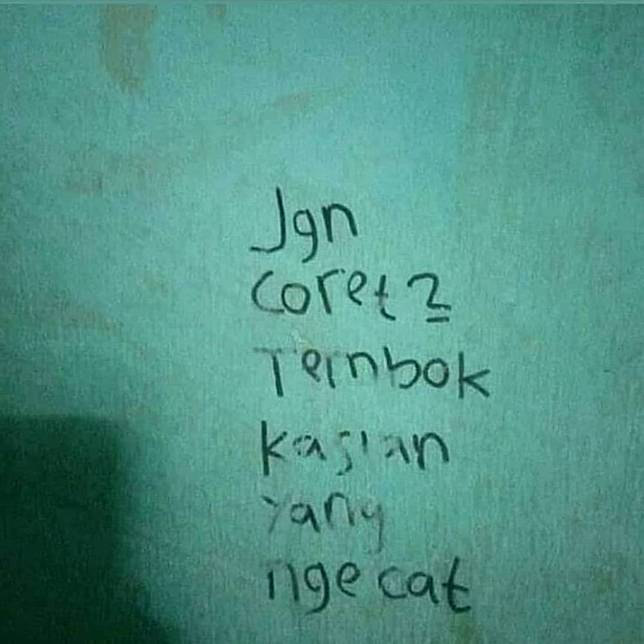 Jgn
coret2
Tembok
kasian
yang
nge cat